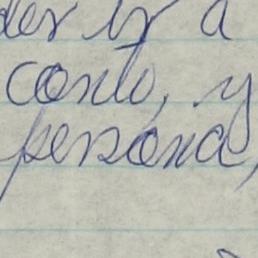 der ir a
conto, y
persona,